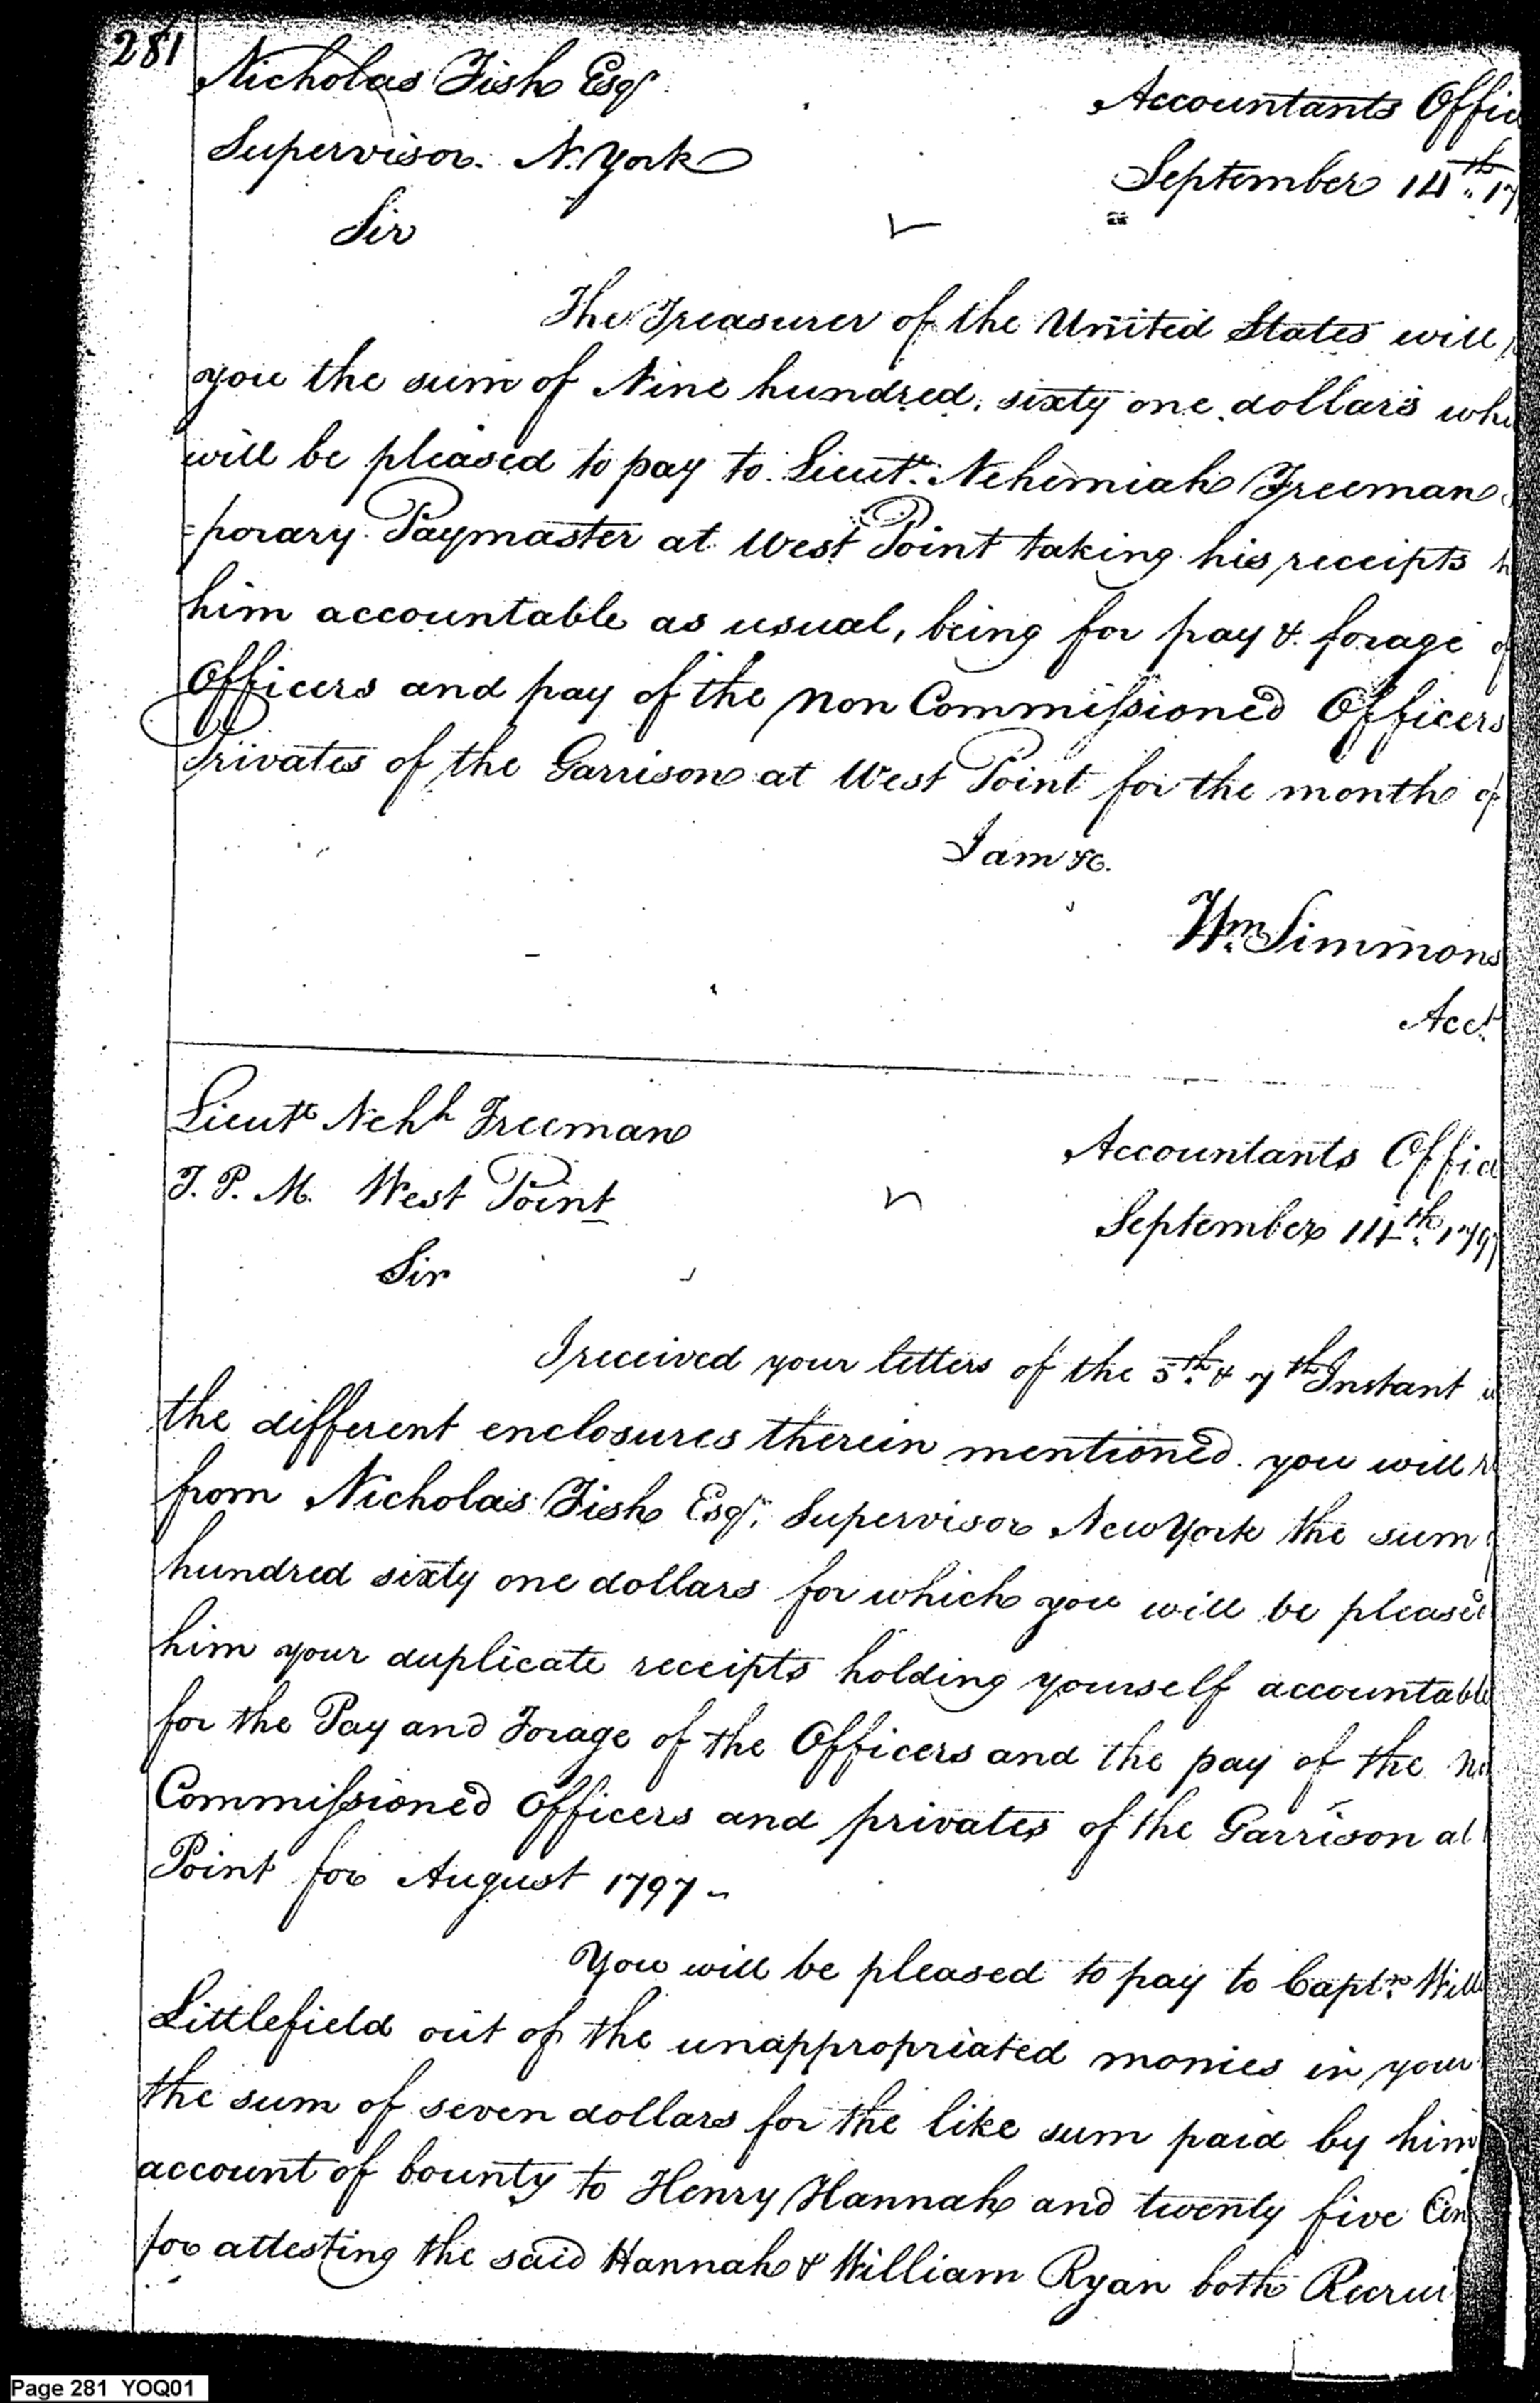 281
Nicholas Fish Esqr.
Accountants Offic
Supervisor. N. York
September 14th. 17
Sir
The Treasurer of the United States will
you the sum of Nine hundred, sixty one dollars whi
will be pleased to pay to Lieutt. Nehemiah Freeman
=porary Paymaster at West Point taking his receipts h
him accountable as usual, being for pay & forage of
Officers and pay of the non Commissioned Officers
Privates of the Garrison at West Point for the month of
I am &c.
Wm. Simmons
Acct.
Lieutt Nehh Freeman
Accountants Offic
T. P. M. West Point
September 14th. 1797
Sir
I received your letters of the 5th. & 7th Instant
the different enclosures therein mentioned. you will re
from Nicholas Fish Esqr. Supervisor New York the sum
hundred sixty one dollars for which you will be pleased
him your duplicate receipts holding yourself accountable
for the Pay and Forage of the Officers and the pay of the no
Commissioned Officers and privates of the Garrison at
Point for August 1797 -
You will be pleased to pay to Captn. Will
Littlefield out of the unappropriated monies in your
the sum of seven dollars for the like sum paid by him
account of bounty to Henry Hannah and twenty five Cen
for attesting the said Hannah & William Ryan both Recrui
Page 281 YOQ01